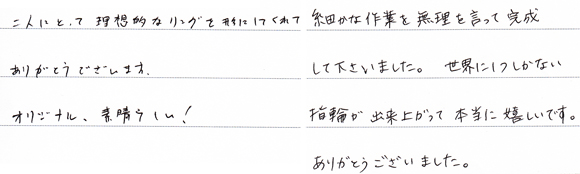 二人にとって理想的なリングを形にしてくれて
ありがとうございます.
オリジナル、素晴らしい!
細かな作業を無理を言って完成
して下さいました。 世界に1つしかない
指輪が出来上がって本当に嬉しいです。
ありがとうございました。